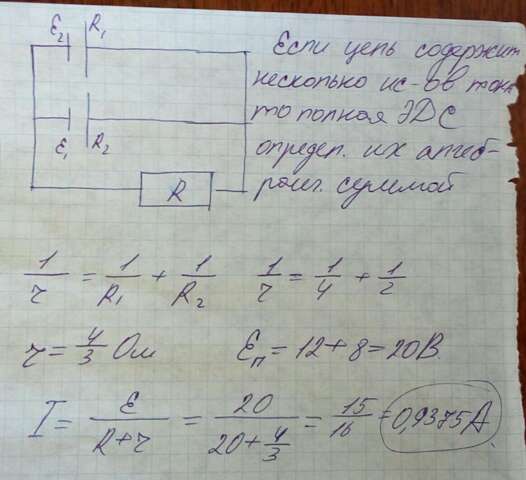 Ɛ₂ R₁
Ɛ₁ R₂
R
Если цепь содержит
несколько ис-ов тока
то полная ЭДС
определ. их алгеб-
раич. суммой
1/r = 1/R₁ + 1/R₂ 1/r = 1/4 + 1/2
r = 4/3 Ом Ɛп = 12 + 8 = 20 В
I = Ɛ/(R+r) = 20/(20+4/3) = 15/16 = 0,9375 А